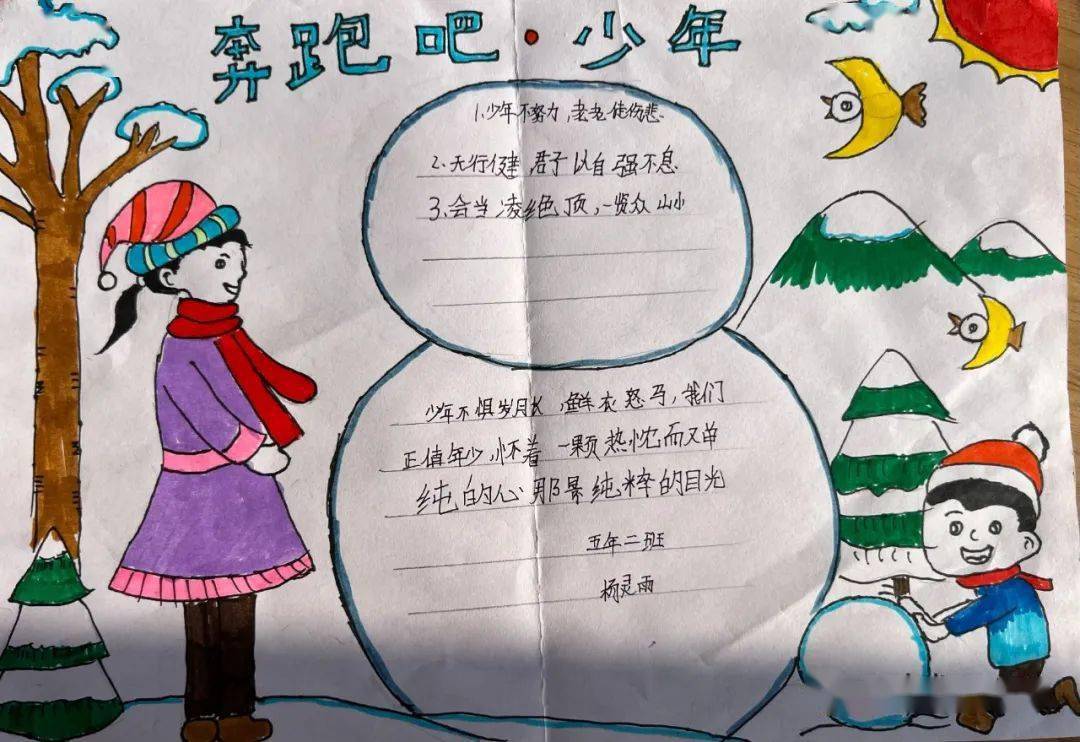 奔跑吧·少年
1.少年不努力,老老徒伤悲.
2.天行健 君子以自强不息
3.会当凌绝顶,一览众山小
少年不惧岁月长,鲜衣怒马,我们
正值年少,怀着一颗热忱而又单
纯的心 那景纯粹的目光
五年二班
杨灵雨